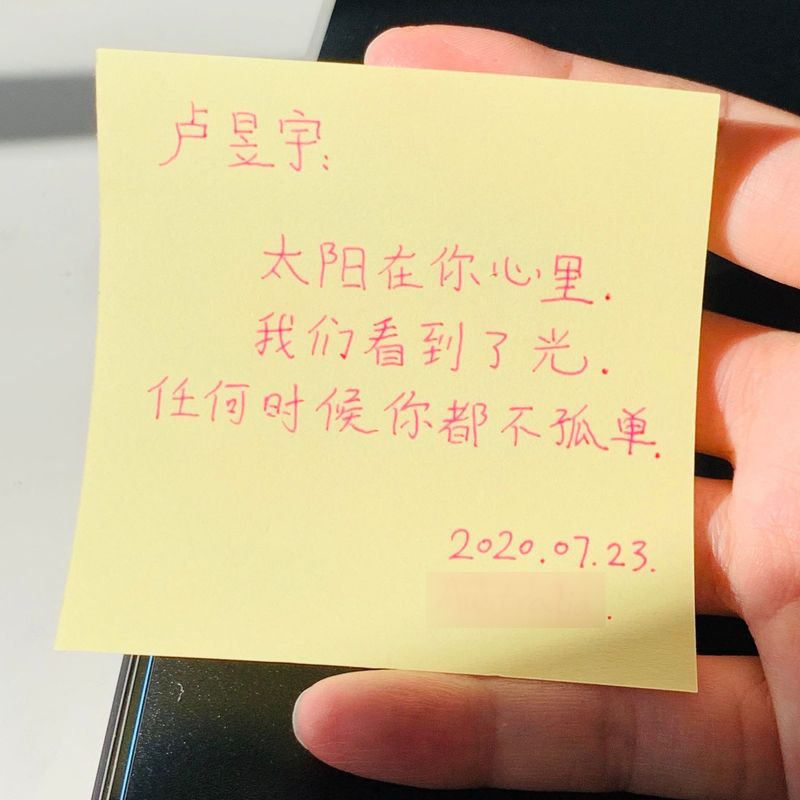 卢昱宇:
太阳在你心里.
我们看到了光.
任何时候你都不孤单.
2020.07.23.